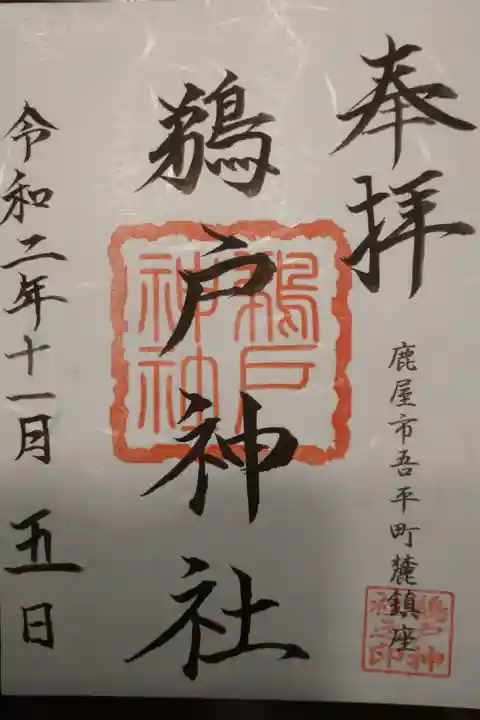 奉拝
鹿屋市吾平町麓鎮座
鵜戸神社之印
鵜戸神社
鵜戸神社
令和二年十一月五日